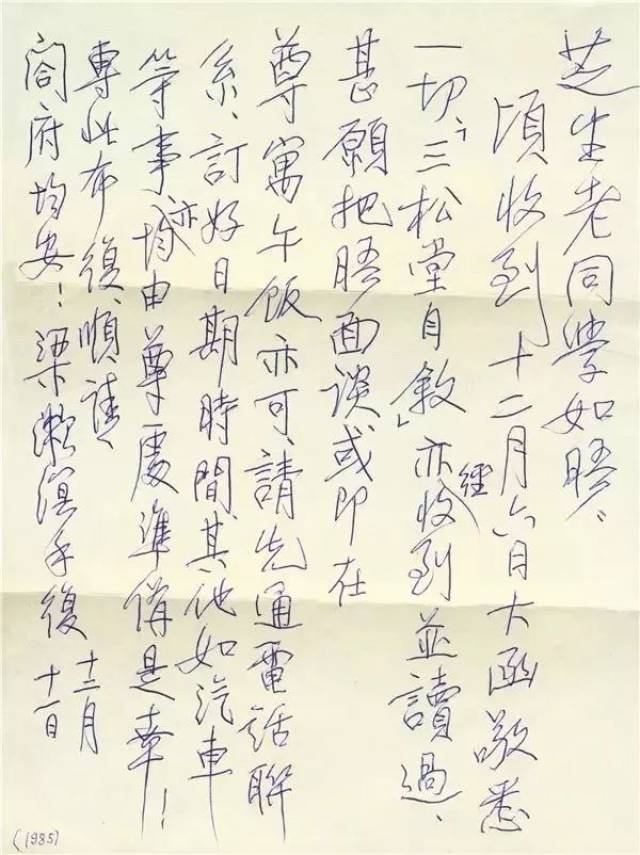 芝生老同学如晤：
頃收到十二月六日大函敬悉
一切、「三松堂自敘」亦經收到並讀過、
甚願把晤面谈或即在
尊寓午飯亦可、請先通電話聯
系、訂好日期時間、其他如汽車
等事亦均由尊處準備是幸！
專此布復、順請
閤府均安！梁漱溟手復 十二月十一日
(1985)